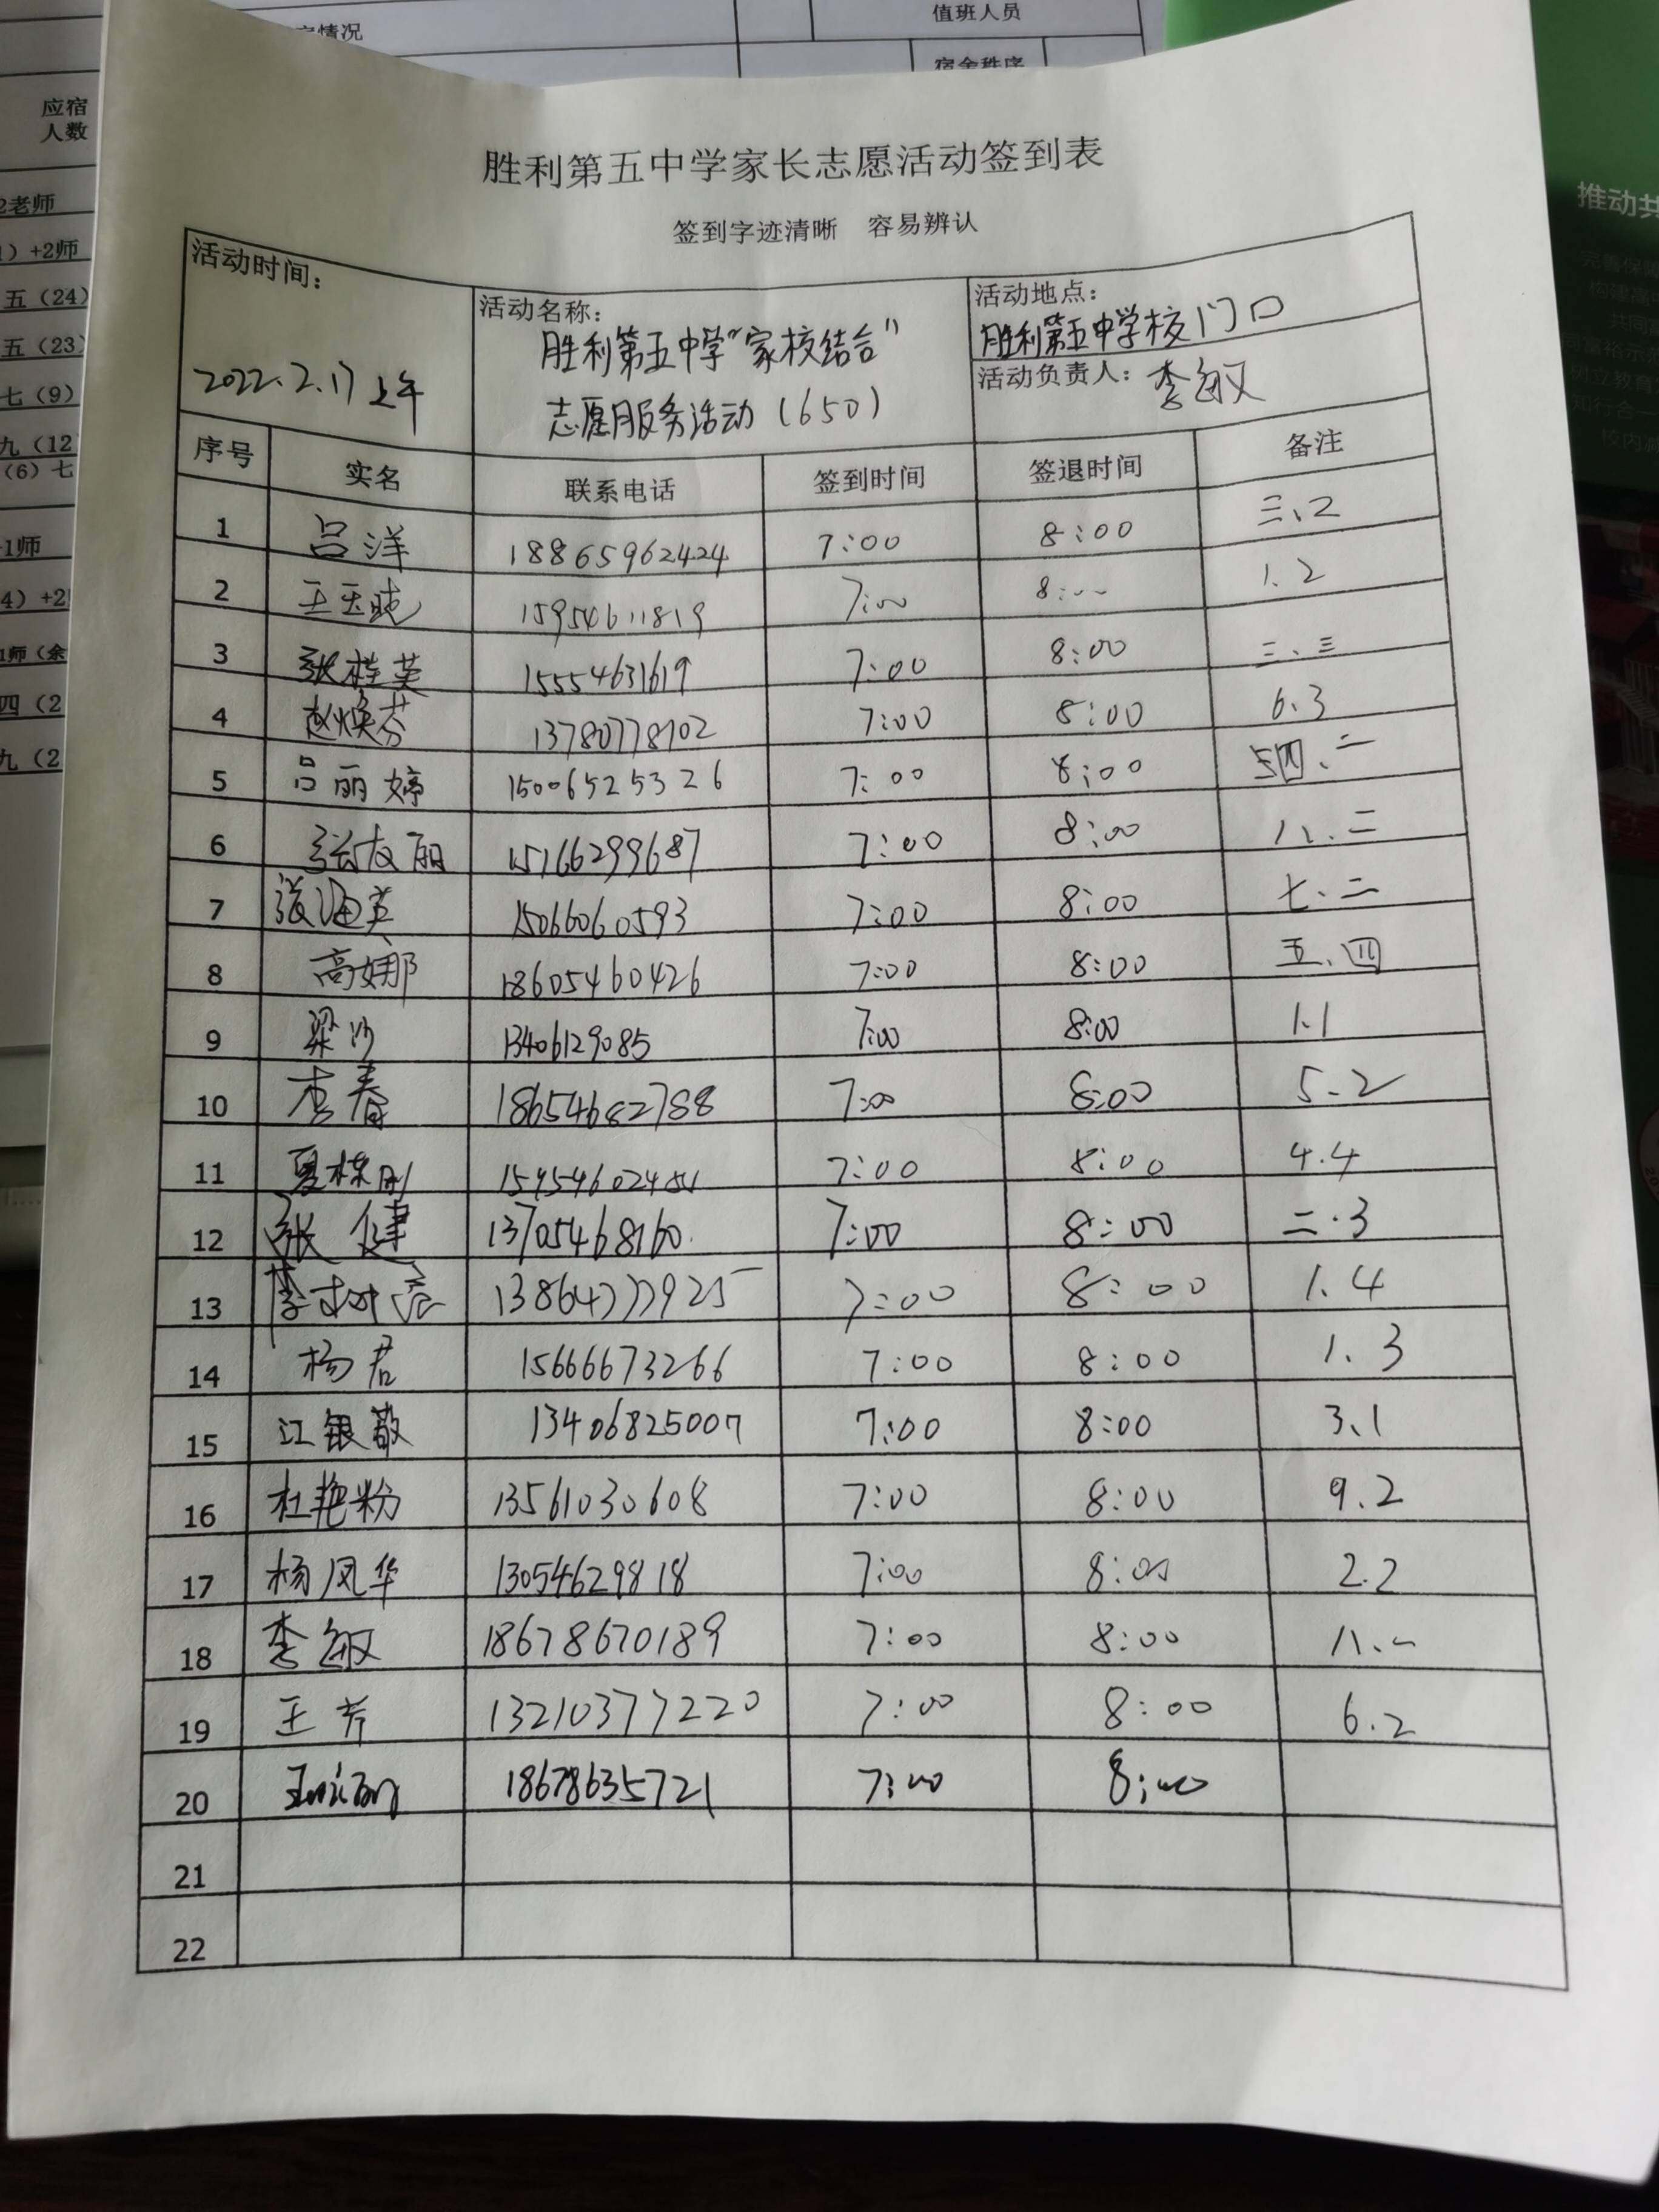 情况
值班人员
宿舍秩序
应宿
人数
2老师
）+2师
五（24）
五（23）
七（9）
九（12
（6）七
1师
4）+2
1师（余
四（2
九（2
推动共
胜利第五中学家长志愿活动签到表
签到字迹清晰 容易辨认
活动时间：
2022.2.17上午
活动名称：
胜利第五中学"家校结合"
志愿服务活动（650）
活动地点：
胜利第五中学校门口
活动负责人：李敏
序号 实名 联系电话 签到时间 签退时间 备注
1 吕洋 18865962424 7:00 8:00 三、2
2 王玉晓 15954611819 7:00 8:00 1.2
3 张桂英 15554631619 7:00 8:00 二、三
4 赵焕芬 13780778702 7:00 8:00 6.3
5 吕丽婷 15006525326 7:00 8:00 四、二
6 张友丽 15166299687 7:00 8:00 八.二
7 张海英 15066060593 7:00 8:00 七.二
8 高娜 18605460426 7:00 8:00 五、四
9 梁沙 13406129085 7:00 8:00 1.1
10 李春 18654682788 7:00 8:00 5.2
11 夏栋刚 7:00 8:00 4.4
12 张健 13705468160 7:00 8:00 二.3
13 李树 13864777925 7:00 8:00 1.4
14 杨君 15666673266 7:00 8:00 1.3
15 江银敬 13406825007 7:00 8:00 3.1
16 杜艳粉 13561030608 7:00 8:00 9.2
17 杨凤华 13054629818 7:00 8:00 2.2
18 李敏 18678670189 7:00 8:00 八.一
19 王芳 13210377220 7:00 8:00 6.2
20 18678635721 7:00 8:00
21
22